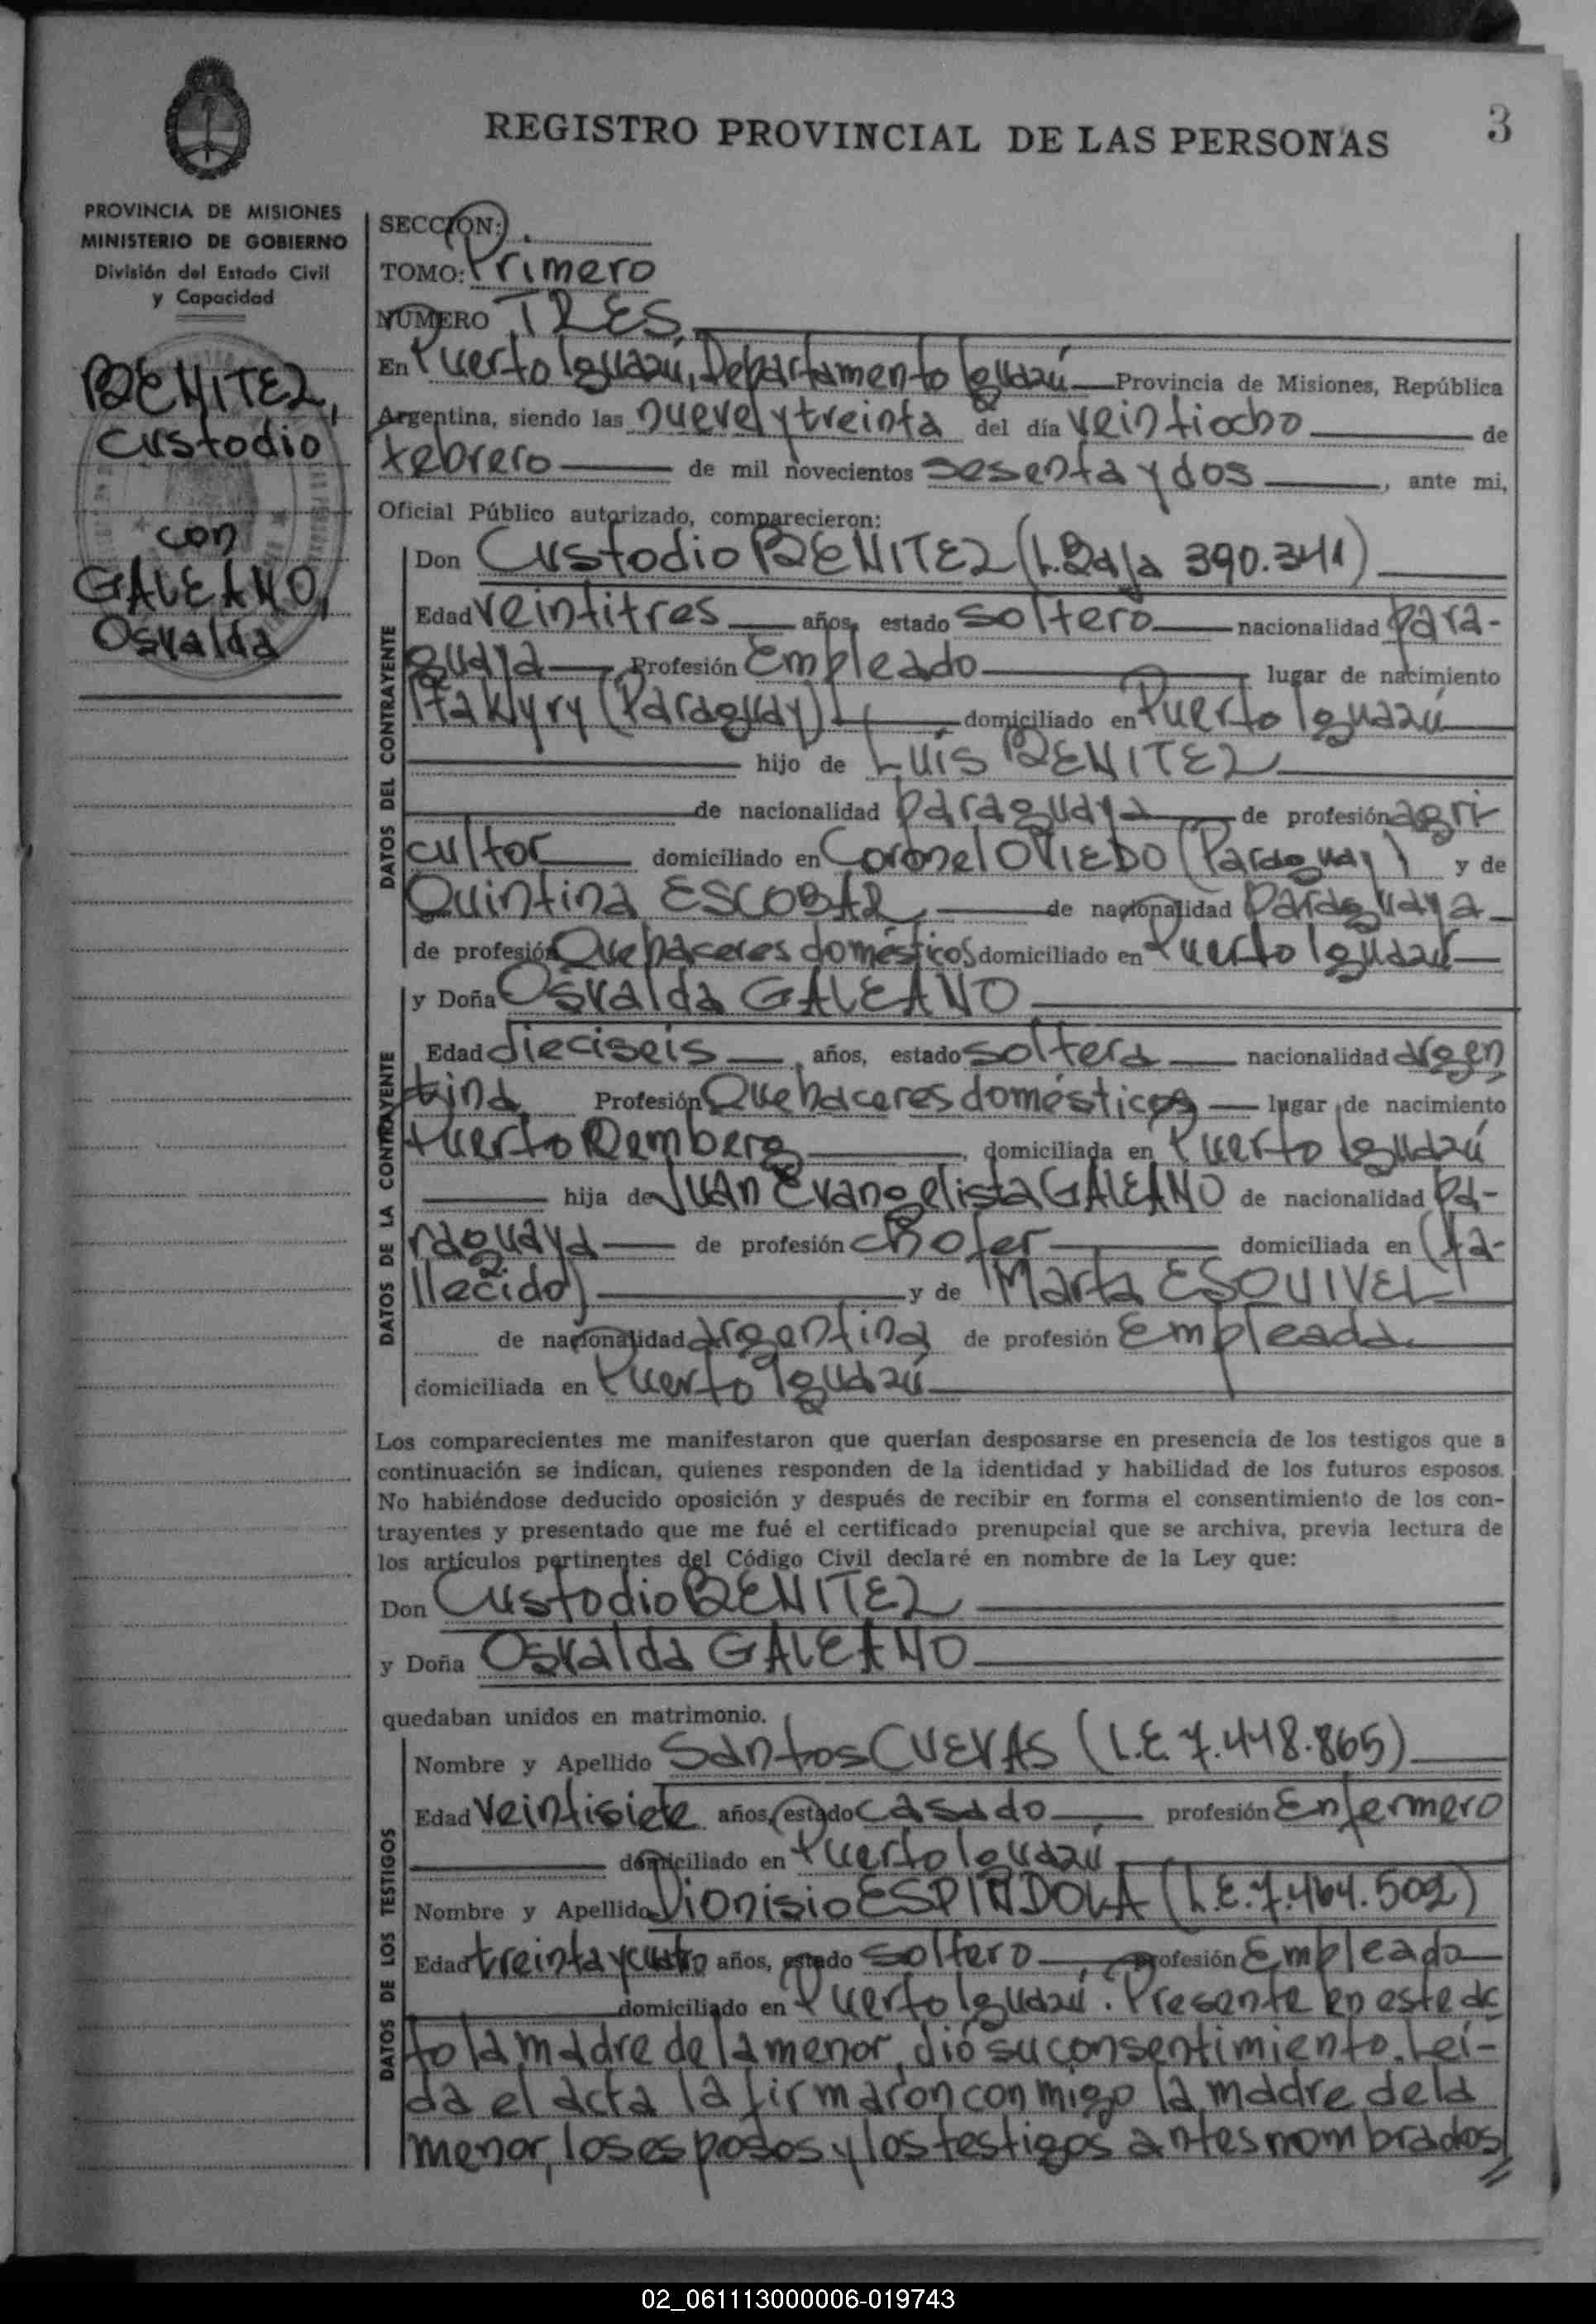 3
REGISTRO PROVINCIAL DE LAS PERSONAS
PROVINCIA DE MISIONES
MINISTERIO DE GOBIERNO
División del Estado Civil
y Capacidad
BENITEZ,
Custodio
con
GALEANO,
Osvalda
SECCION:
TOMO: Primero
NUMERO TRES
En Puerto Iguazú, Departamento Iguazú Provincia de Misiones, República
Argentina, siendo las nueve y treinta del día veintiocho de
febrero de mil novecientos sesenta y dos, ante mi,
Oficial Público autorizado, comparecieron:
DATOS DEL CONTRAYENTE
Don Custodio BENITEZ (L. Baja 390.341)
Edad veintitres años, estado soltero nacionalidad para-
guaya Profesión Empleado lugar de nacimiento
Itakyry (Paraguay) domiciliado en Puerto Iguazú
hijo de Luis BENITEZ
de nacionalidad paraguaya de profesión agri
cultor domiciliado en Coronel OVIEDO (Paraguay) y de
Quintina ESCOBAR, de nacionalidad Paraguaya
de profesión Quehaceres domésticos domiciliado en Puerto Iguazú
DATOS DE LA CONTRAYENTE
y Doña Osvalda GALEANO
Edad dieciseis, años, estado soltera nacionalidad argen
tina Profesión Quehaceres domésticos lugar de nacimiento
Puerto Bemberg, domiciliada en Puerto Iguazú
hija de Juan Evangelista GALEANO de nacionalidad pa-
raguaya de profesión chofer domiciliada en (fa-
llecido) y de Marta ESQUIVEL
de nacionalidad argentina de profesión Empleada
domiciliada en Puerto Iguazú
Los comparecientes me manifestaron que querían desposarse en presencia de los testigos que a
continuación se indican, quienes responden de la identidad y habilidad de los futuros esposos.
No habiéndose deducido oposición y después de recibir en forma el consentimiento de los con-
trayentes y presentado que me fué el certificado prenupcial que se archiva, previa lectura de
los artículos pertinentes del Código Civil declaré en nombre de la Ley que:
Don Custodio BENITEZ
y Doña Osvalda GALEANO
quedaban unidos en matrimonio.
DATOS DE LOS TESTIGOS
Nombre y Apellido Santos CUEVAS (L.E. 7.448.865)
Edad veintisiete años, estado casado profesión Enfermero
domiciliado en Puerto Iguazú
Nombre y Apellido Dionisio ESPINDOLA (L.E. 7.464.502)
Edad treinta y cuatro años, estado soltero, profesión Empleado
domiciliado en Puerto Iguazú. Presente en este ac
to la madre de la menor, dió su consentimiento. Leí-
da el acta la firmaron conmigo la madre de la
menor, los esposos y los testigos antes nombrados
02_061113000006-019743